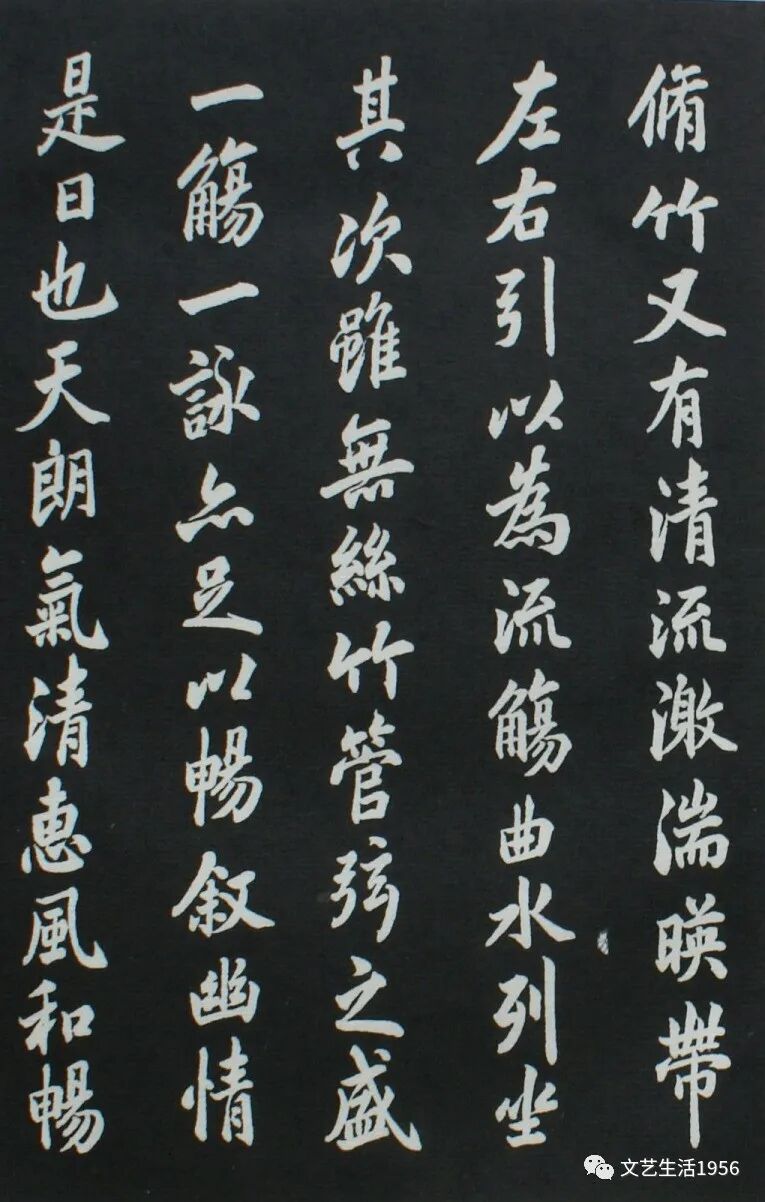 脩竹又有清流激湍暎帶
左右引以為流觴曲水列坐
其次雖無絲竹管弦之盛
一觴一詠亦足以暢敘幽情
是日也天朗氣清惠風和暢
文艺生活1956